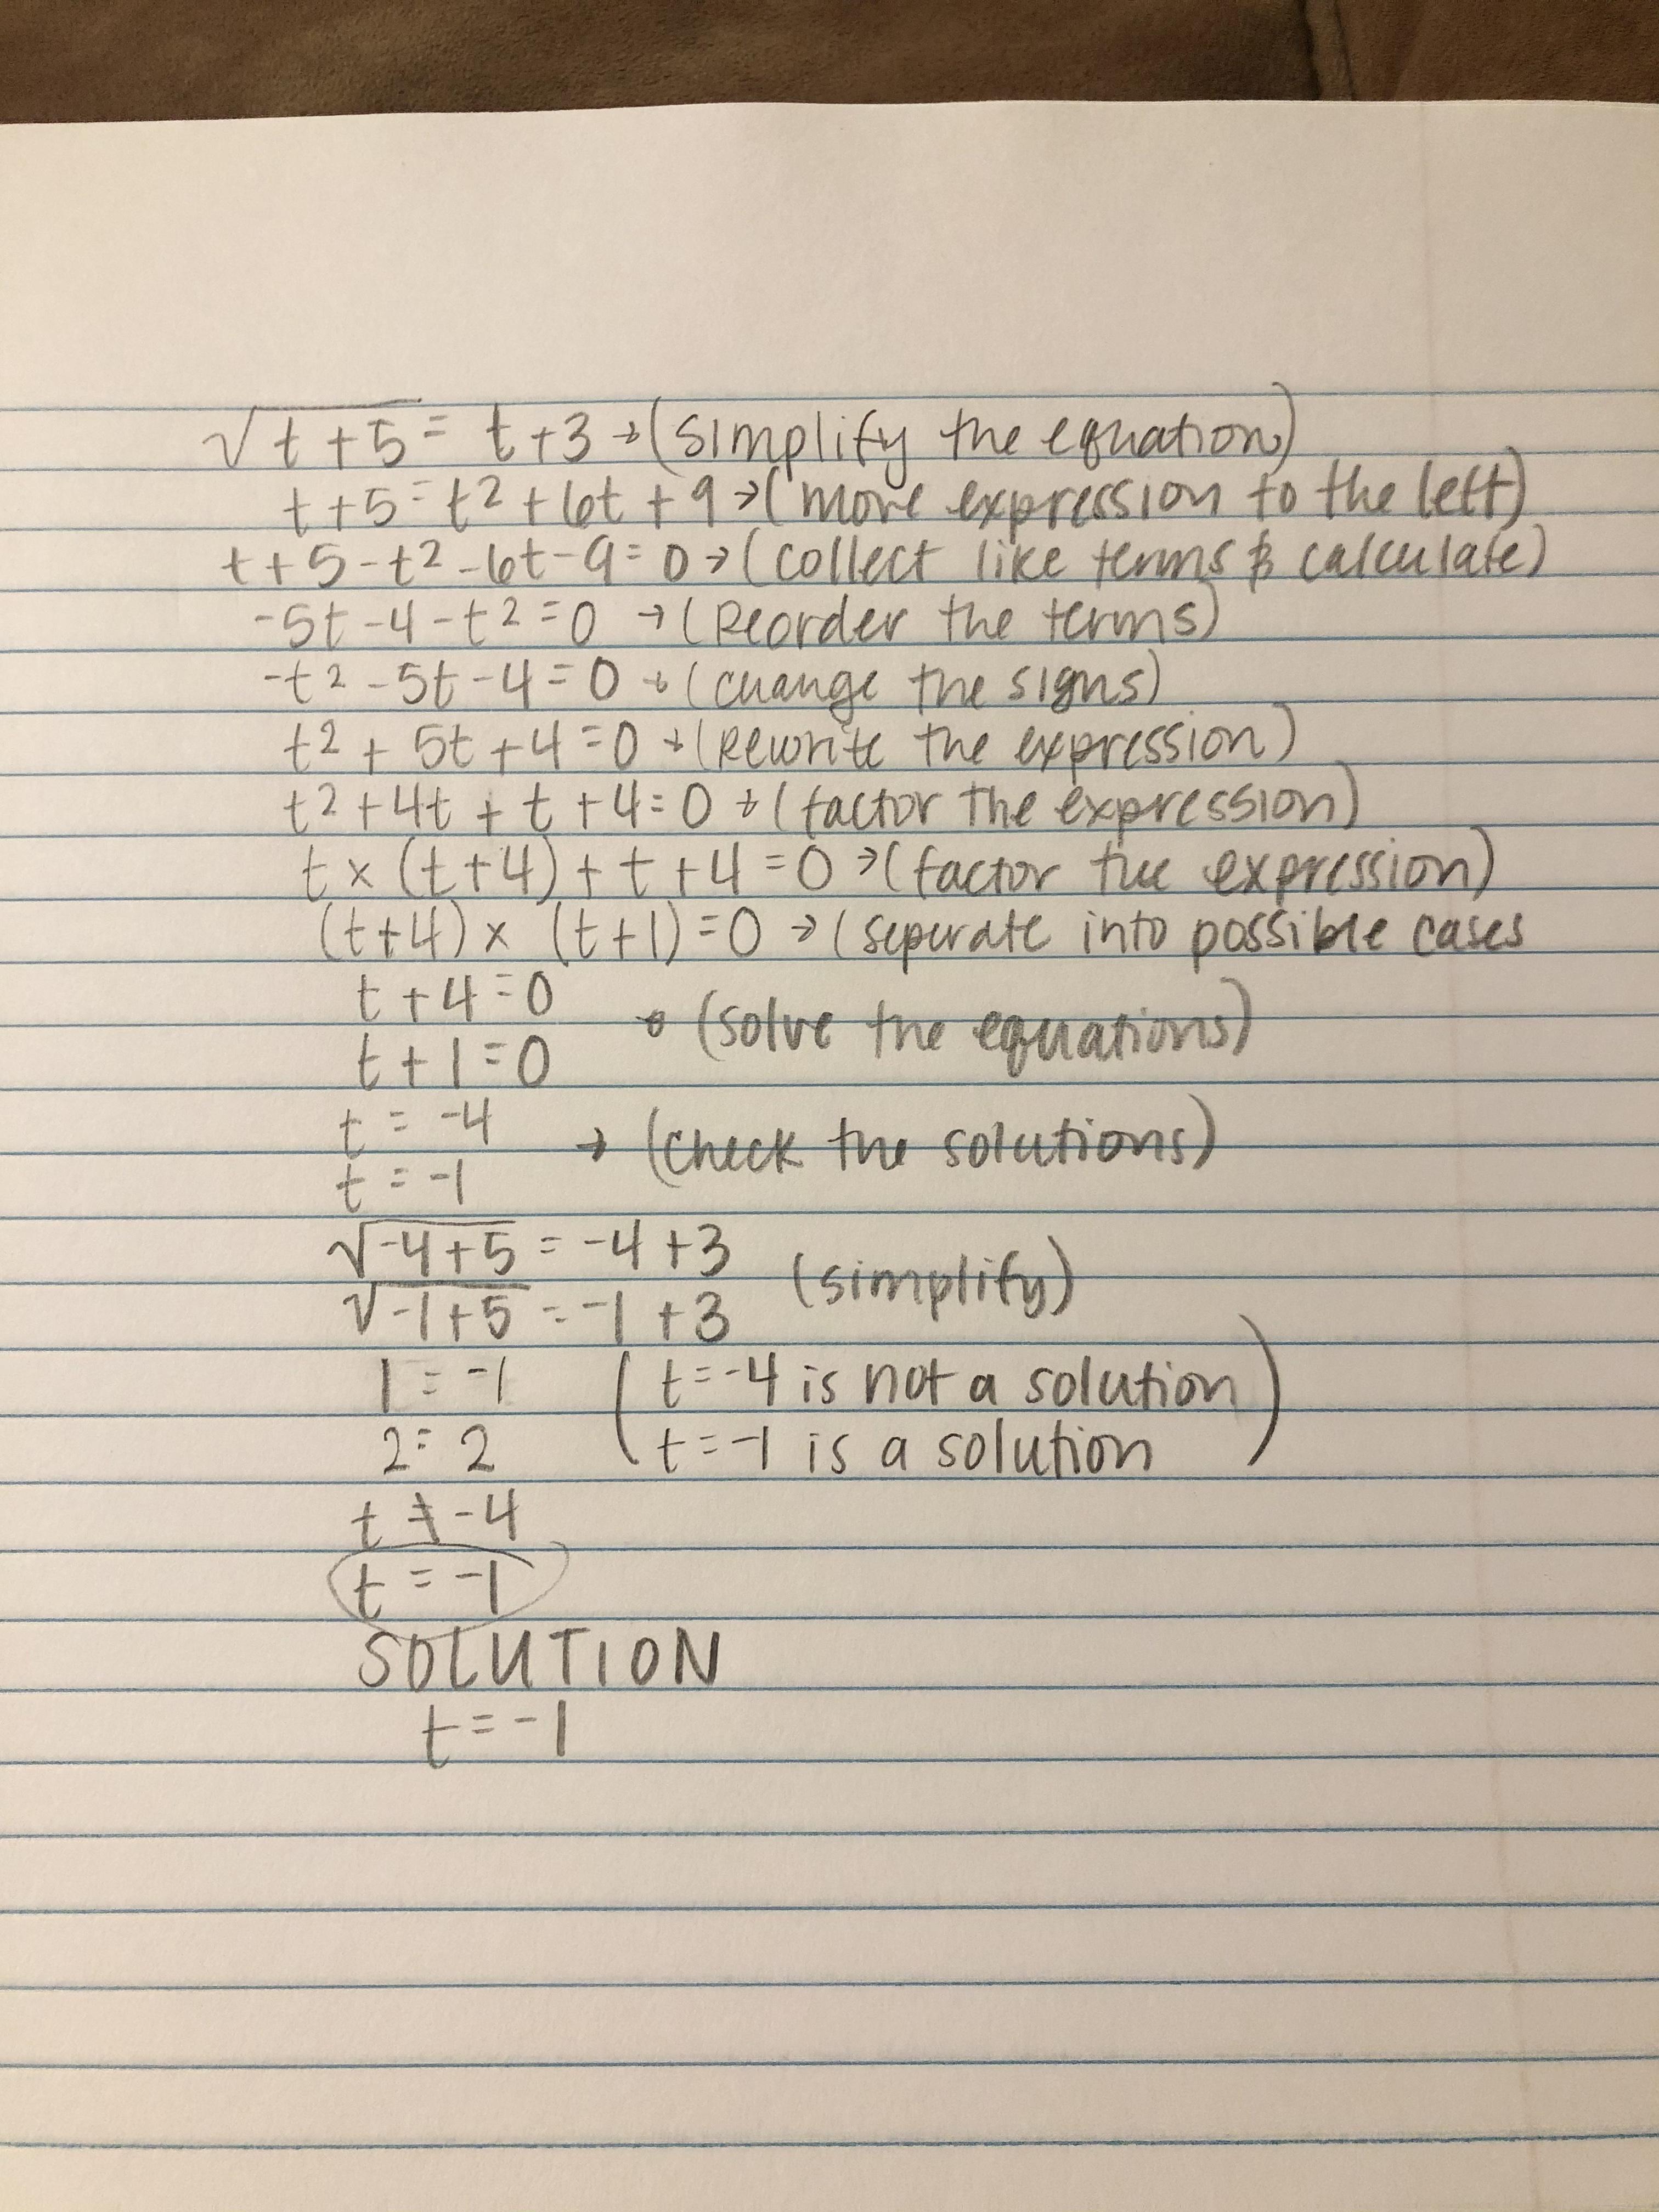 √t+5 = t+3 → (simplify the equation)
t+5 = t2 + 6t + 9 → (move expression to the left)
t+5-t2-6t-9=0 → (collect like terms & calculate)
-5t-4-t2=0 → (Reorder the terms)
-t2-5t-4=0 → (change the signs)
t2 + 5t +4=0 → (Rewrite the expression)
t2+4t + t +4=0 → (factor the expression)
t x (t+4) + t +4 =0 → (factor the expression)
(t+4) x (t+1)=0 → (seperate into possible cases
t+4=0
t+1=0
→ (solve the equations)
t = -4
t = -1
→ (check the solutions)
√-4+5 = -4+3
√-1+5 = -1 +3
(simplify)
1 = -1 (t=-4 is not a solution
2 = 2 t=-1 is a solution)
t ≠ -4
t = -1
SOLUTION
t = -1